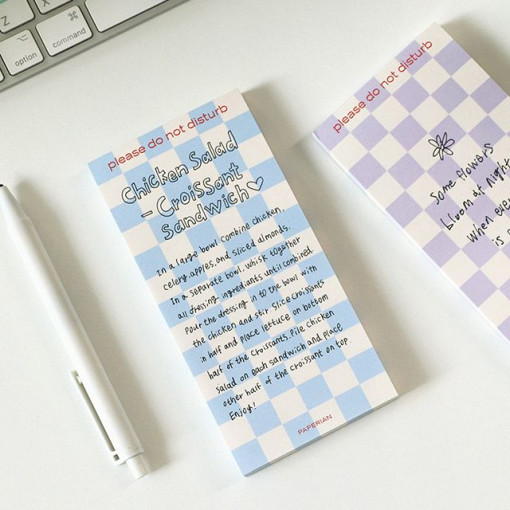 Z
X
⌘
option
command
please do not disturb
Chicken Salad
- Croissant
sandwich♡
In a large bowl combine chicken,
celery, apples, and sliced almonds.
In a separate bowl, whisk together
all dressing ingrediants until combined.
Pour the dressing in to the bowl with
the chicken and stir. Slice croissants
in half and place lettuce on bottom
half of the croissants. Pile chicken
salad on each sandwich and place
other half of the croissant on top.
Enjoy!
PAPERIAN
please do not disturb
Some flowers
bloom at night
when
is